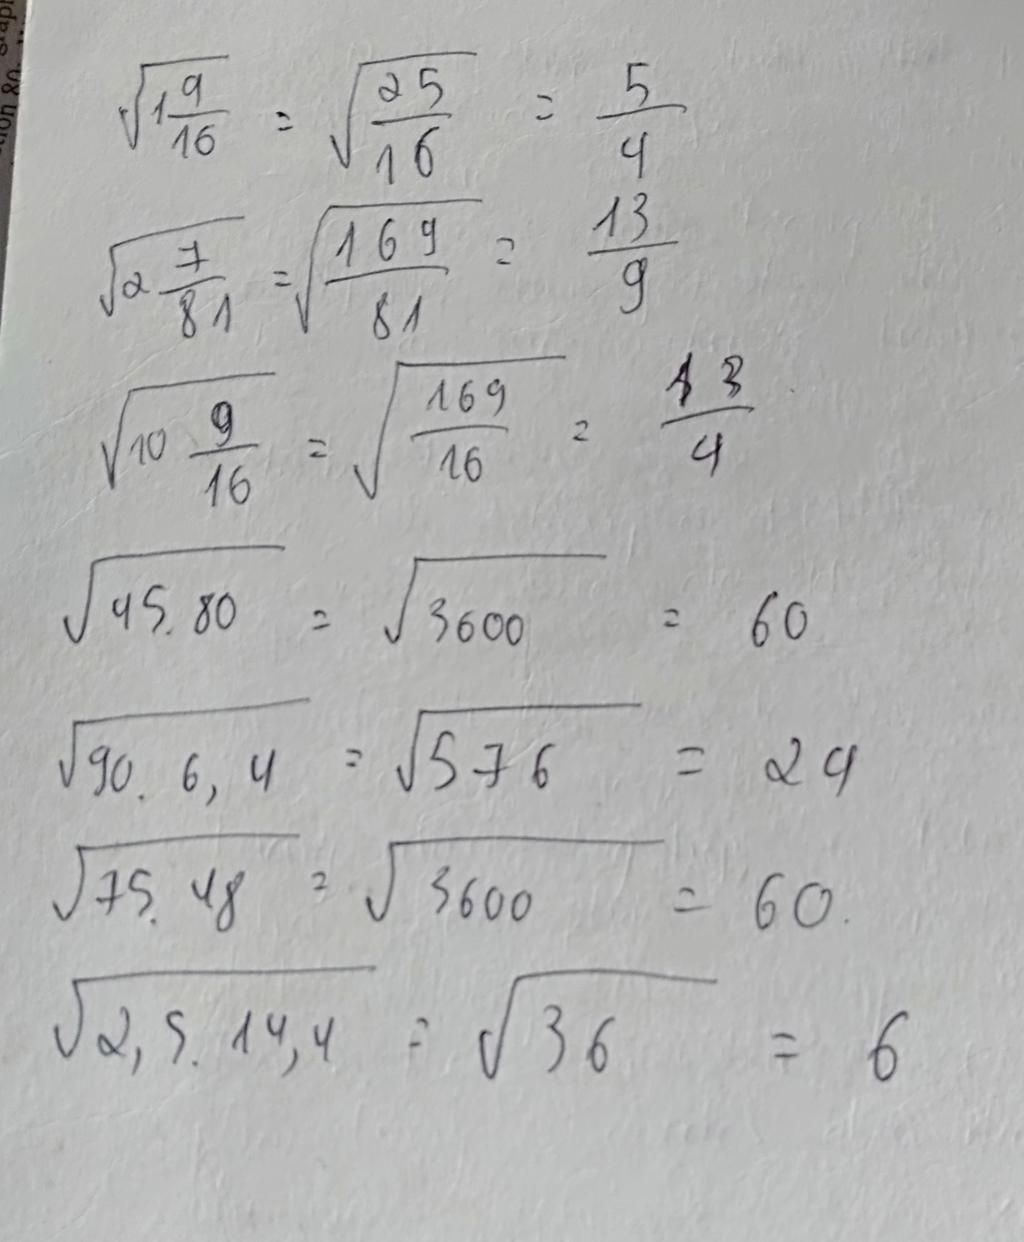 √(1 9/16) = √(25/16) = 5/4
√(2 7/81) = √(169/81) = 13/9
√(10 9/16) = √(169/16) = 13/4
√45.80 = √3600 = 60
√90.6,4 = √576 = 24
√75.48 = √3600 = 60.
√2,5.14,4 = √36 = 6